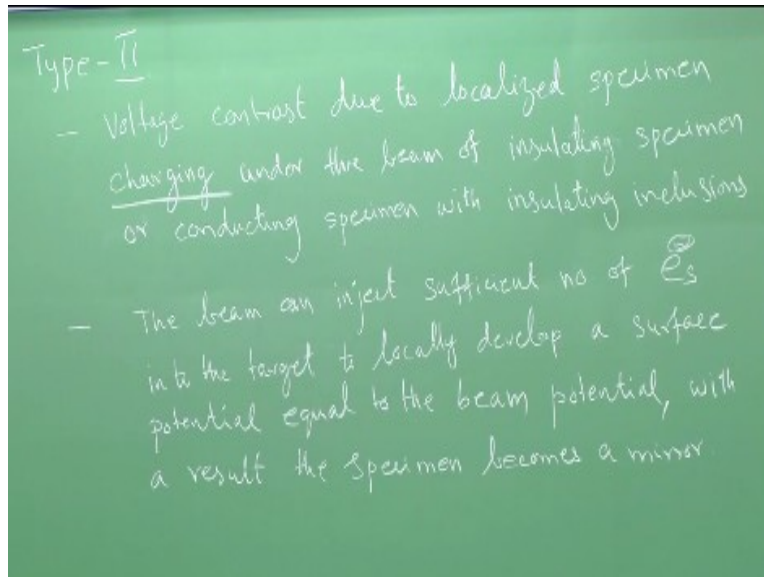 Type-II
- Voltage contrast due to localized specimen
charging under the beam of insulating specimen
or conducting specimen with insulating inclusions
- The beam can inject sufficient no of e⁻s
into the target to locally develop a surface
potential equal to the beam potential, with
a result the specimen becomes a mirror.